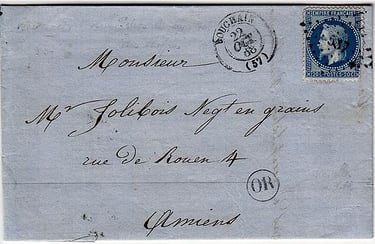 BOUCHAIN
22
OCT
68
(57)
EMPIRE FRANÇAIS
20 C POSTES 20 C
Monsieur
Mr Jolibois Negt en grains
rue de Rouen 4
OR
Amiens